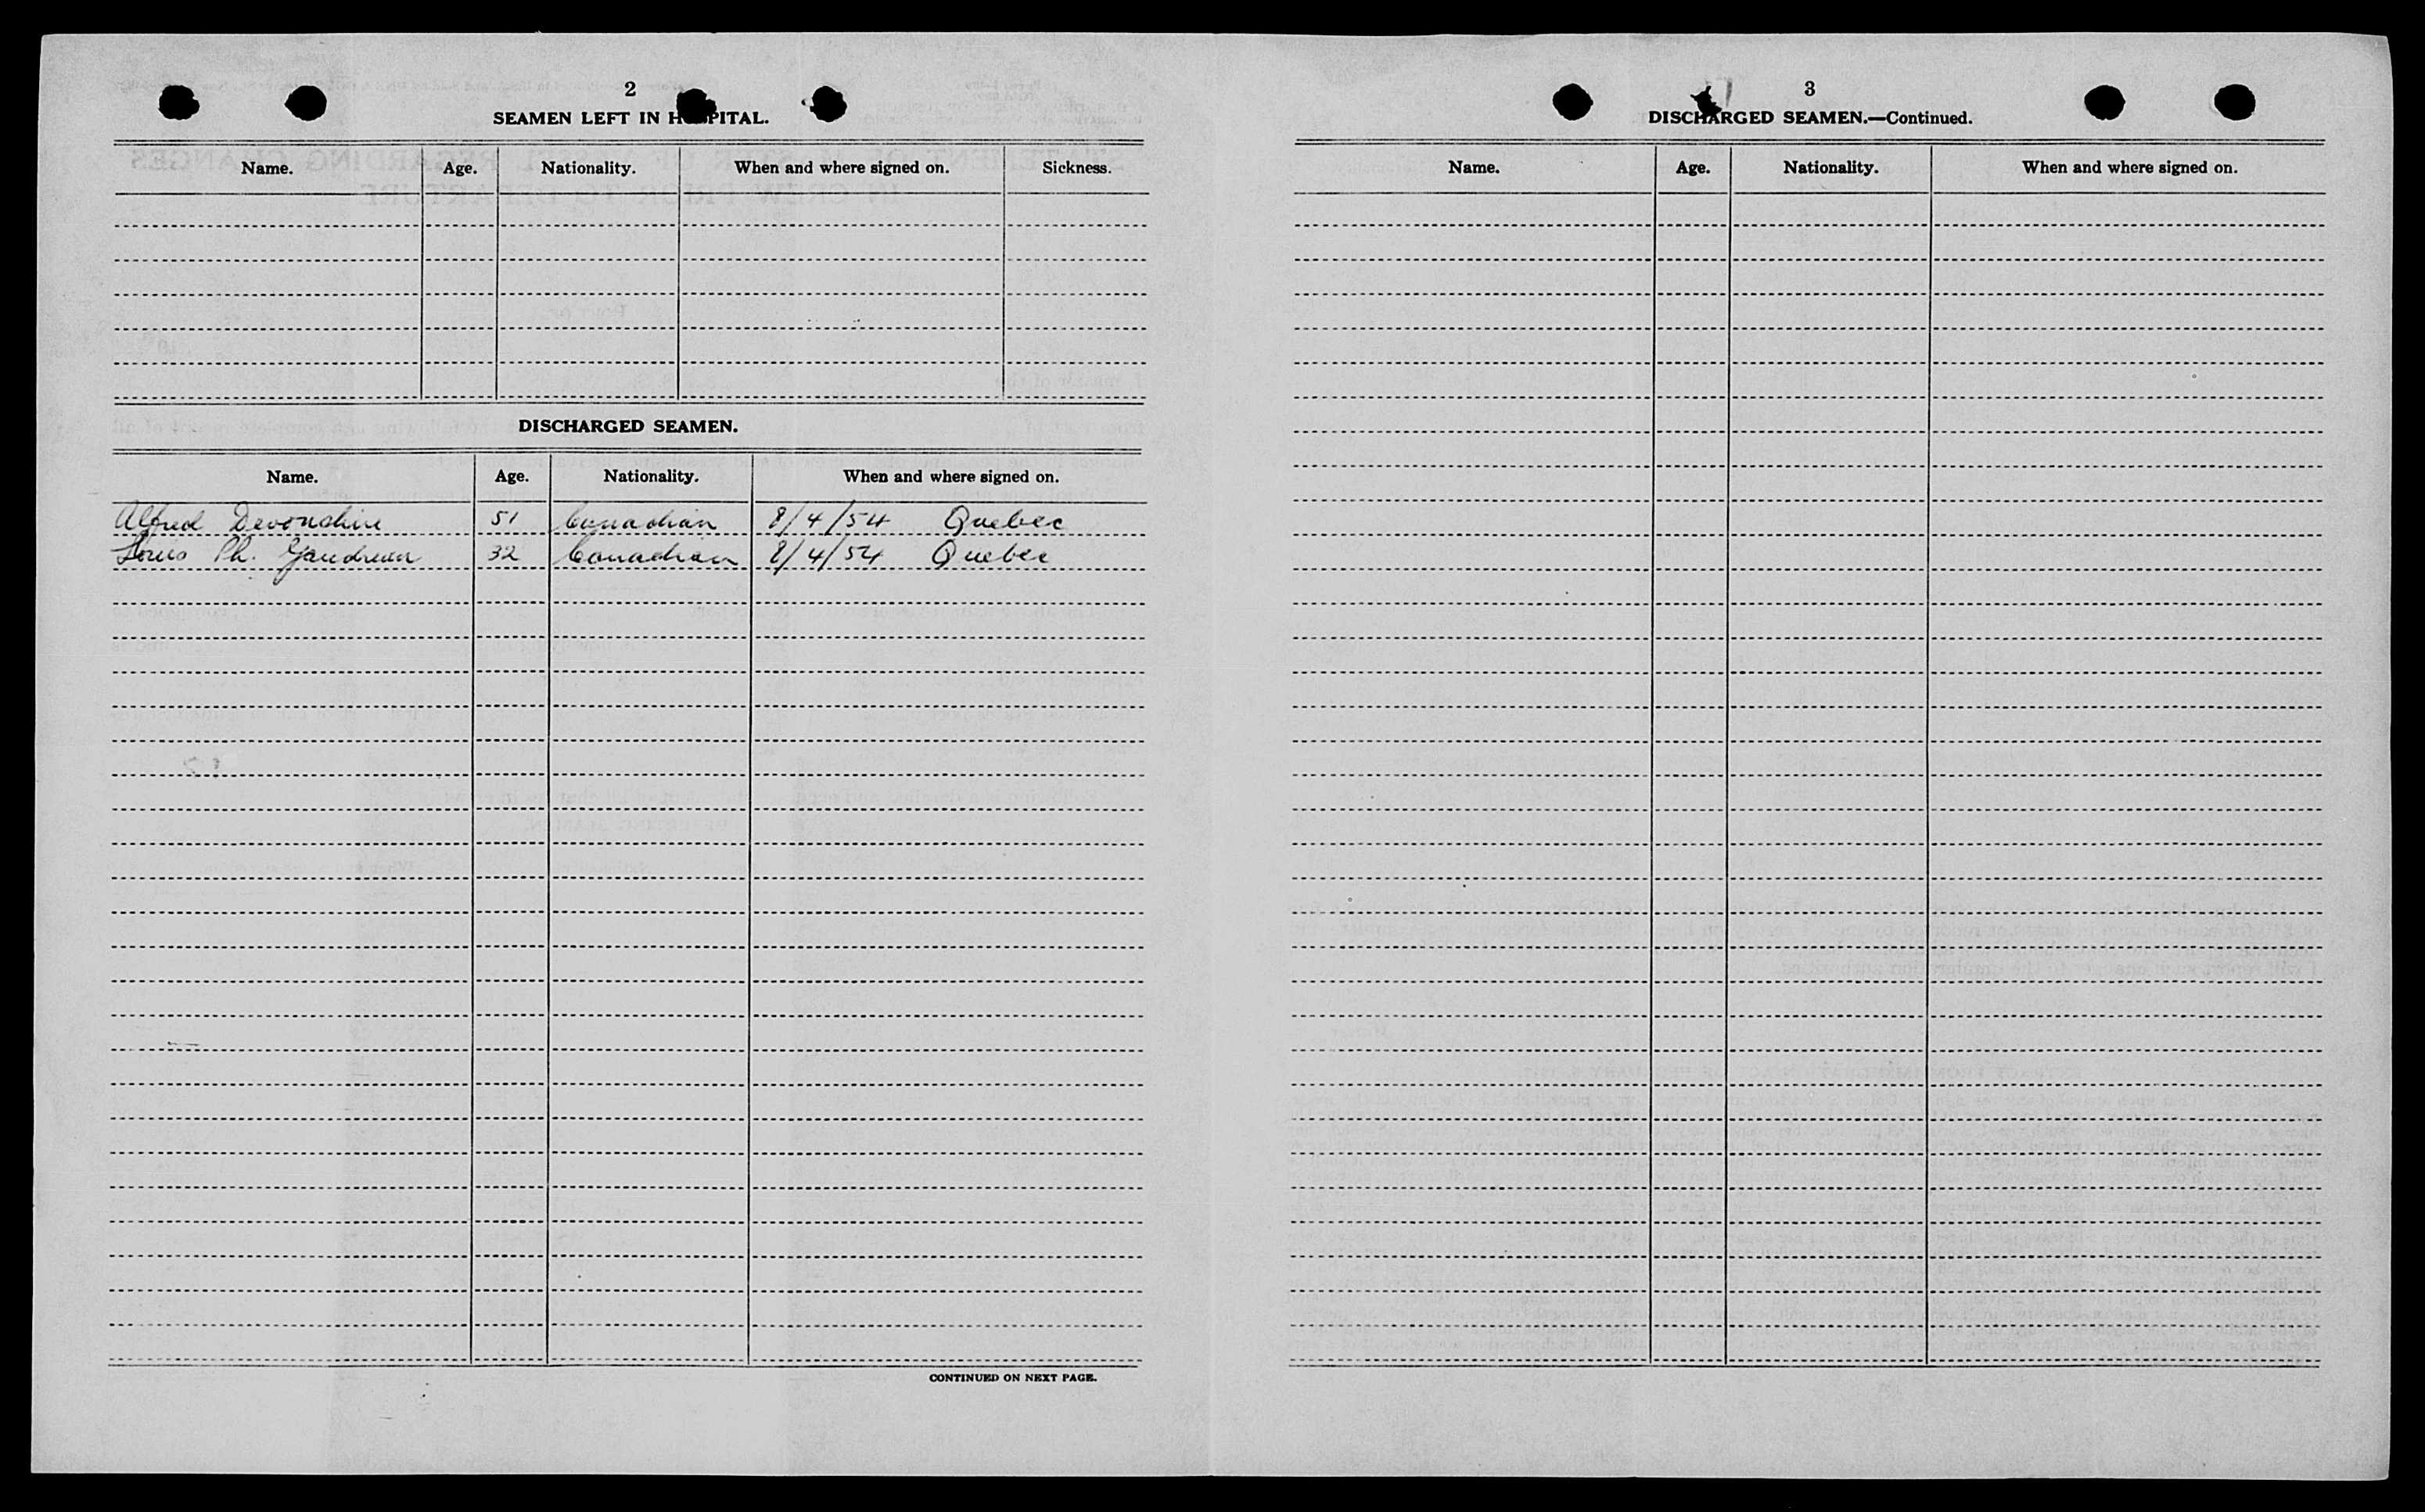 2
SEAMEN LEFT IN HOSPITAL.
Name. Age. Nationality. When and where signed on. Sickness.
DISCHARGED SEAMEN.
Name. Age. Nationality. When and where signed on.
Alfred Devonshire 51 Canadian 8/4/54 Quebec
Louis Ph. Gaudreau 32 Canadian 8/4/54 Quebec
CONTINUED ON NEXT PAGE.
3
DISCHARGED SEAMEN.—Continued.
Name. Age. Nationality. When and where signed on.